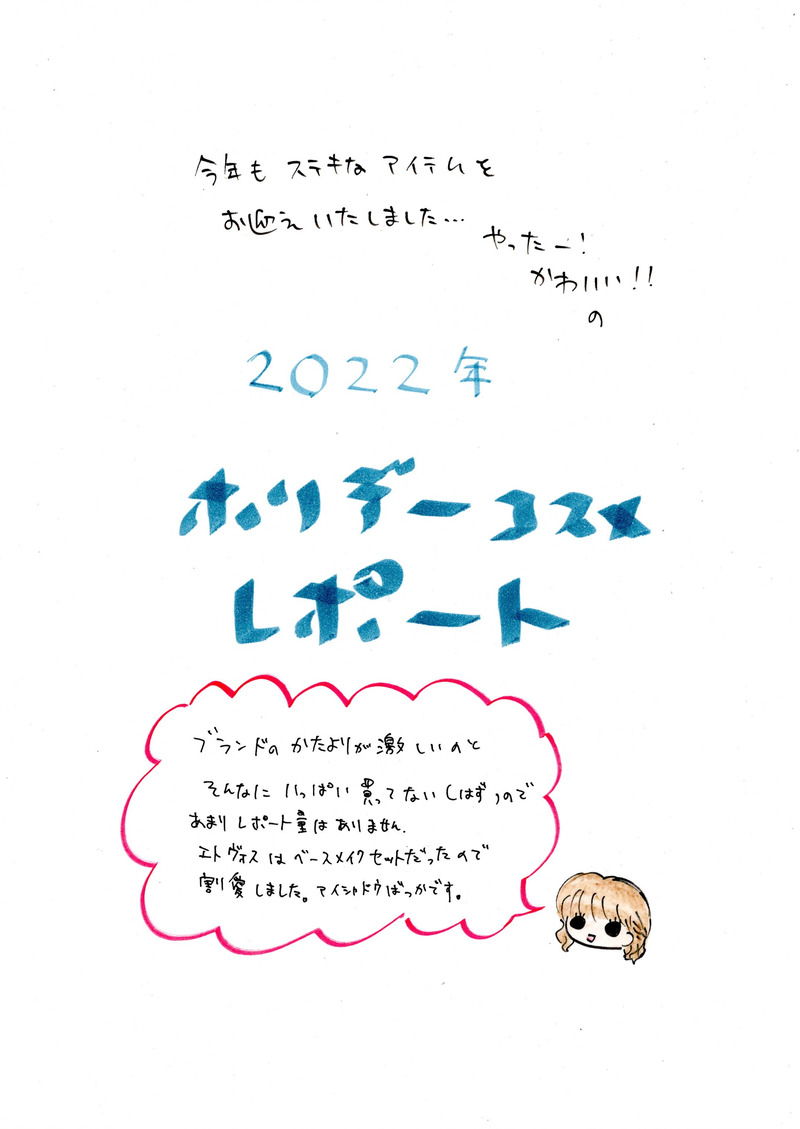 今年も ステキな アイテムを
お迎え いたしました…
やったー!
かわいい!!
の
2022年
ホリデーコスメ
レポート
ブランドの かたよりが激しいのと
そんなに いっぱい 買ってない(はず)ので
あまり レポート量は ありません.
エトヴォス は ベースメイク セットだったので
割愛しました。アイシャドウばっかです。